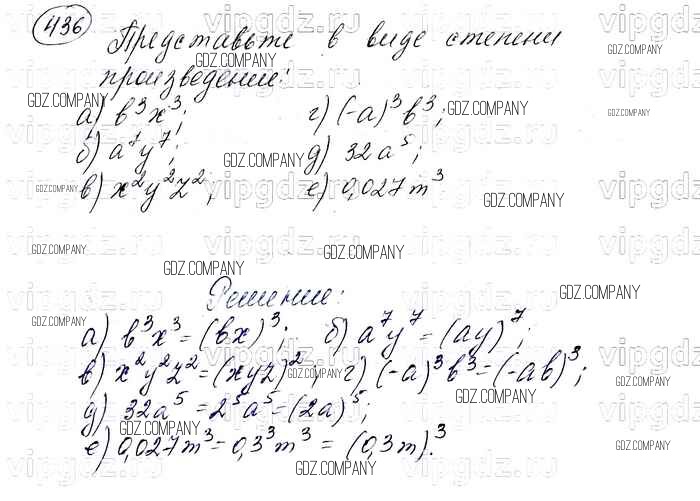 436
Представьте в виде степени
произведение:
а) b³x³;     г) (-a)³b³;
б) a⁷y⁷;     д) 32a⁵;
в) x²y²z²;     е) 0,027m³
Решение:
а) b³x³ = (bx)³;     б) a⁷y⁷ = (ay)⁷;
в) x²y²z² = (xyz)²; г) (-a)³b³ = (-ab)³;
д) 32a⁵ = 2⁵a⁵ = (2a)⁵;
е) 0,027m³ = 0,3³m³ = (0,3m).³